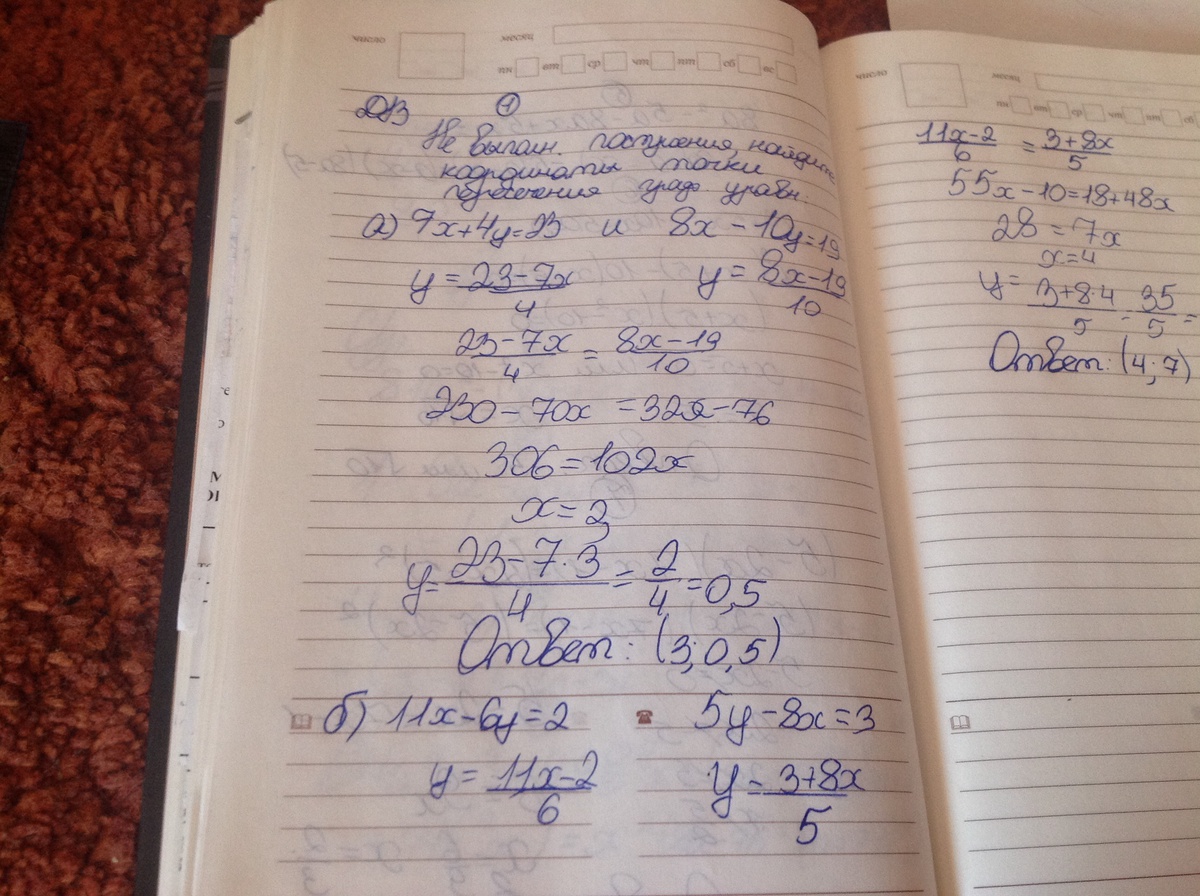 число месяц
пн вт ср чт пт сб вс
①
Не выполн. построения, найдите
координаты точки
пересечения граф уравн.
а) 7x+4y=23 и 8x-10y=19
y=\frac{23-7x}{4} y=\frac{8x-19}{10}
\frac{23-7x}{4}=\frac{8x-19}{10}
230-70x=32x-76
306=102x
x=3
y=\frac{23-7·3}{4}=\frac{2}{4}=0,5
Ответ: (3;0,5)
б) 11x-6y=2 5y-8x=3
y=\frac{11x-2}{6} y=\frac{3+8x}{5}
число месяц
пн вт ср чт пт сб
\frac{11x-2}{6}=\frac{3+8x}{5}
55x-10=18+48x
28=7x
x=4
y=\frac{3+8·4}{5}=\frac{35}{5}=
Ответ: (4;7)